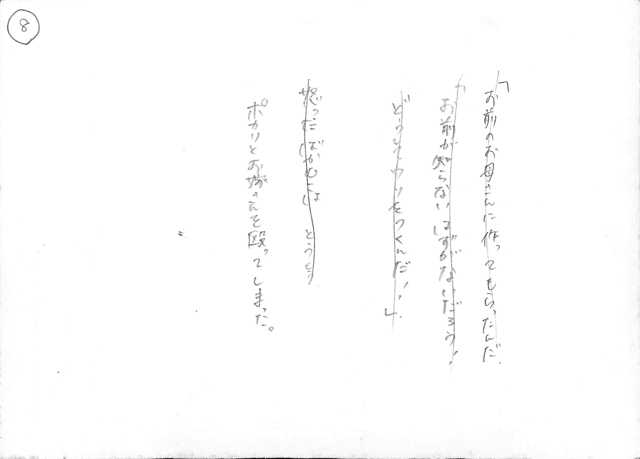 8
「お前のお母さんに作ってもらったんだ。
「お前が知らないはずがないだろう！
どうしてウソをつくんだ！！」
怒っただんなさんは とうとう
ポカリとお嫁さんを殴ってしまった。